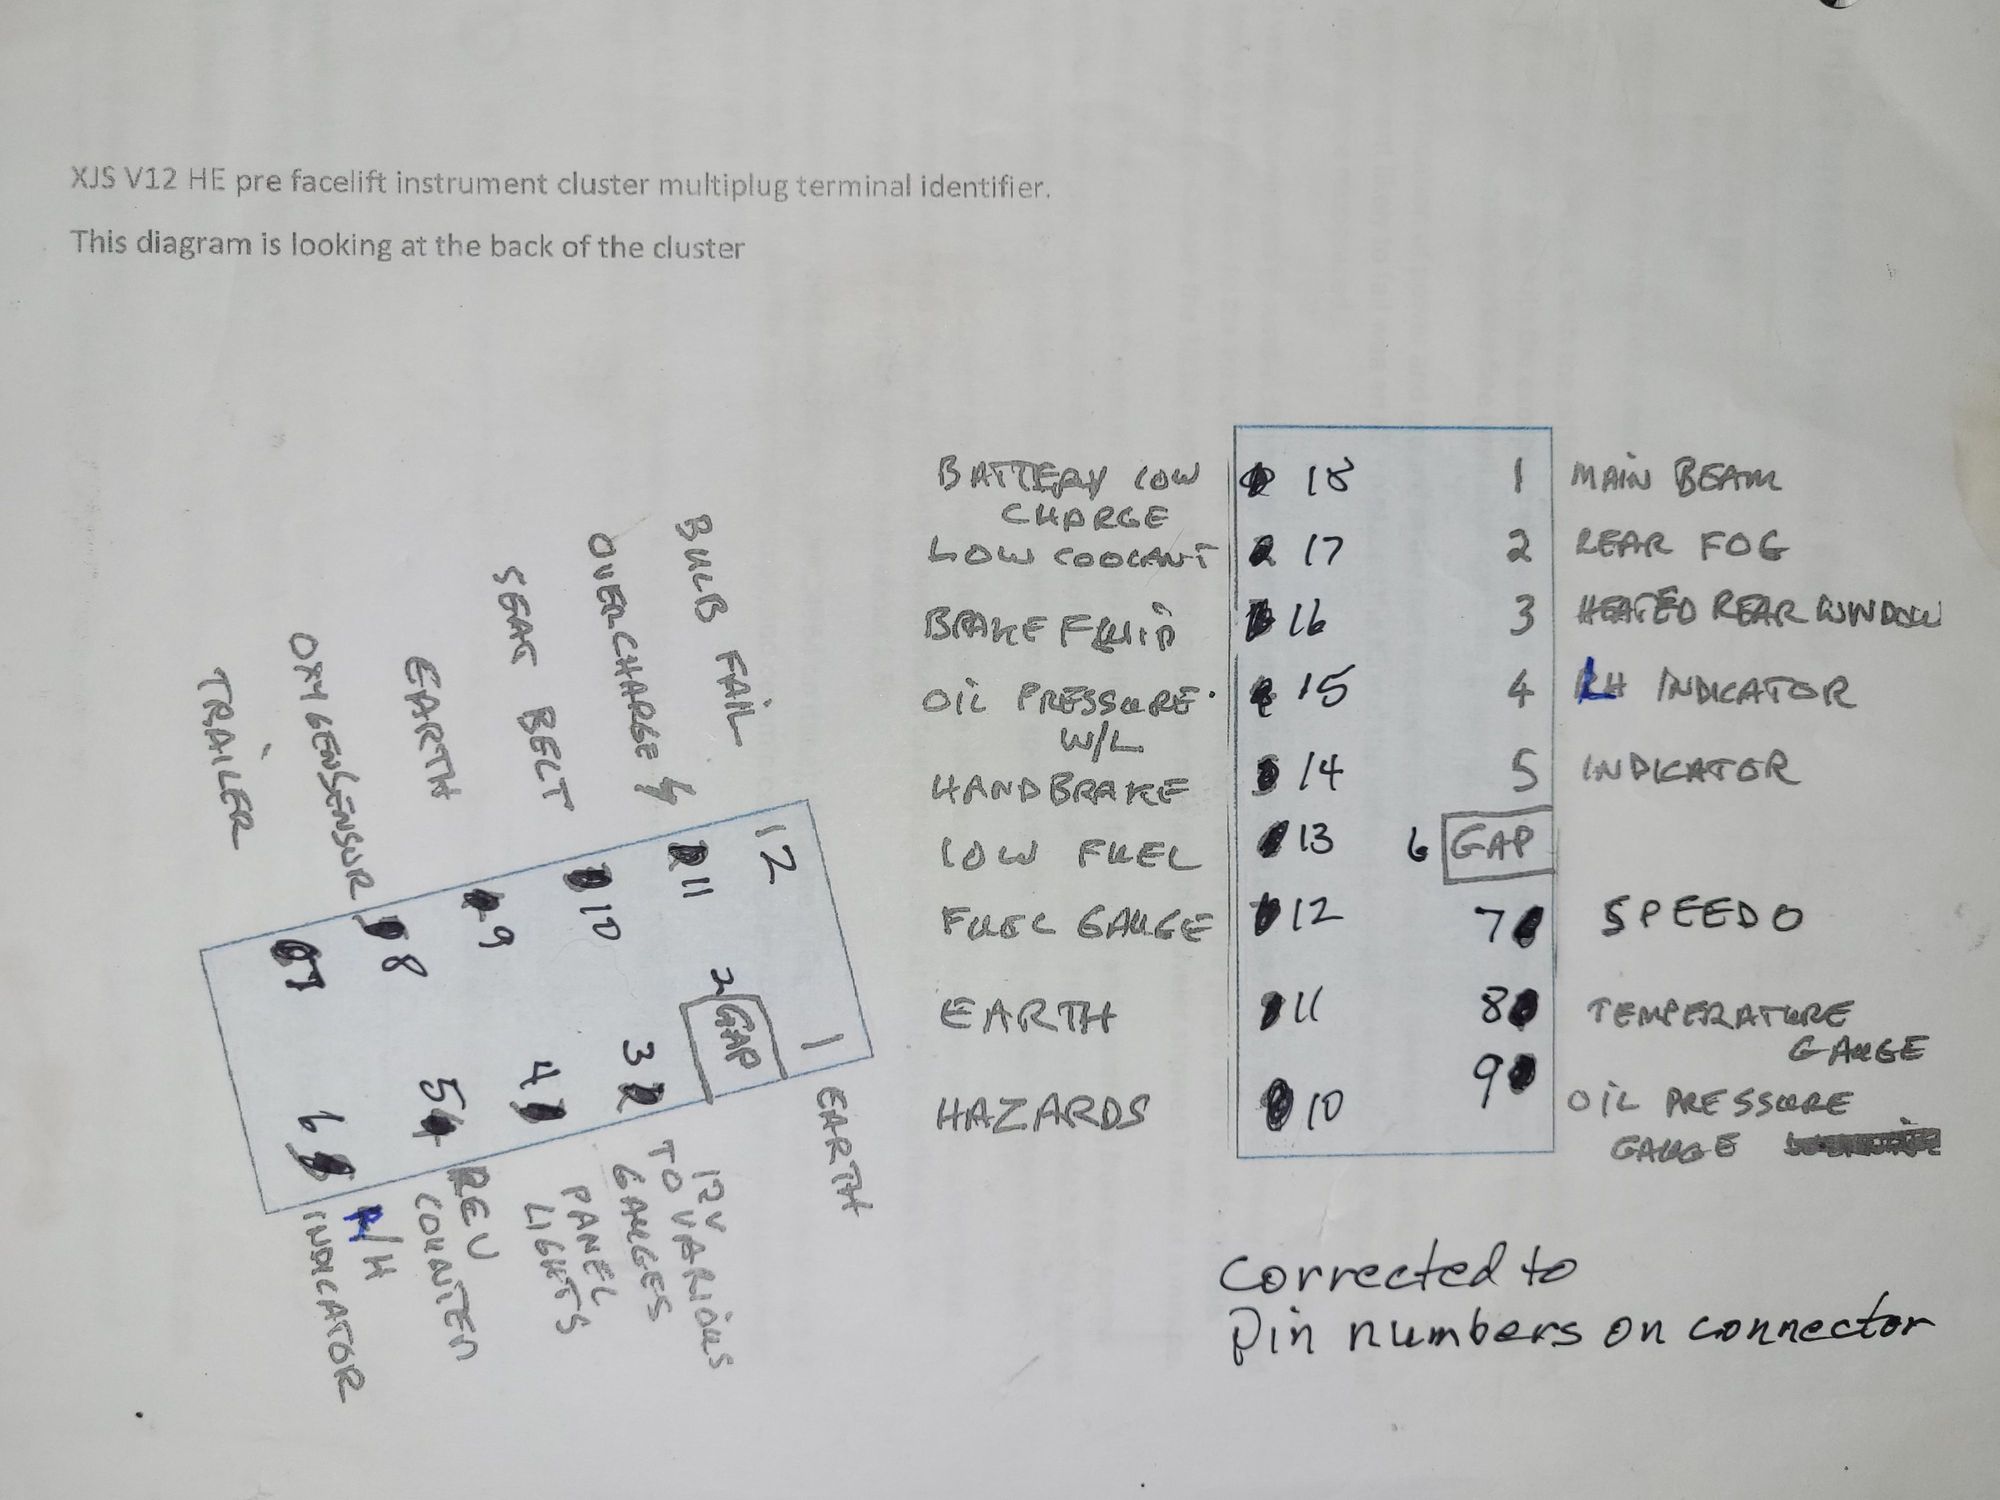 XJS V12 HE pre facelift instrument cluster multiplug terminal identifier.
This diagram is looking at the back of the cluster
BATTERY LOW
CHARGE
18
1
MAIN BEAM
LOW COOLANT
17
2
REAR FOG
BRAKE FLUID
16
3
HEATED REAR WINDOW
OIL PRESSURE
W/L
15
4
LH INDICATOR
HANDBRAKE
14
5
INDICATOR
LOW FUEL
13
6
GAP
FUEL GAUGE
12
7
SPEEDO
EARTH
11
8
TEMPERATURE
GAUGE
HAZARDS
10
9
OIL PRESSURE
GAUGE
TRAILER
OXYGEN SENSOR
EARTH
SEAT BELT
OVERCHARGE
BULB FAIL
7
8
9
10
11
12
6
5
4
3
2
GAP
1
R/H
INDICATOR
REV
COUNTER
PANEL
LIGHTS
12V
TO VARIOUS
GAUGES
EARTH
Corrected to
Pin numbers on connector